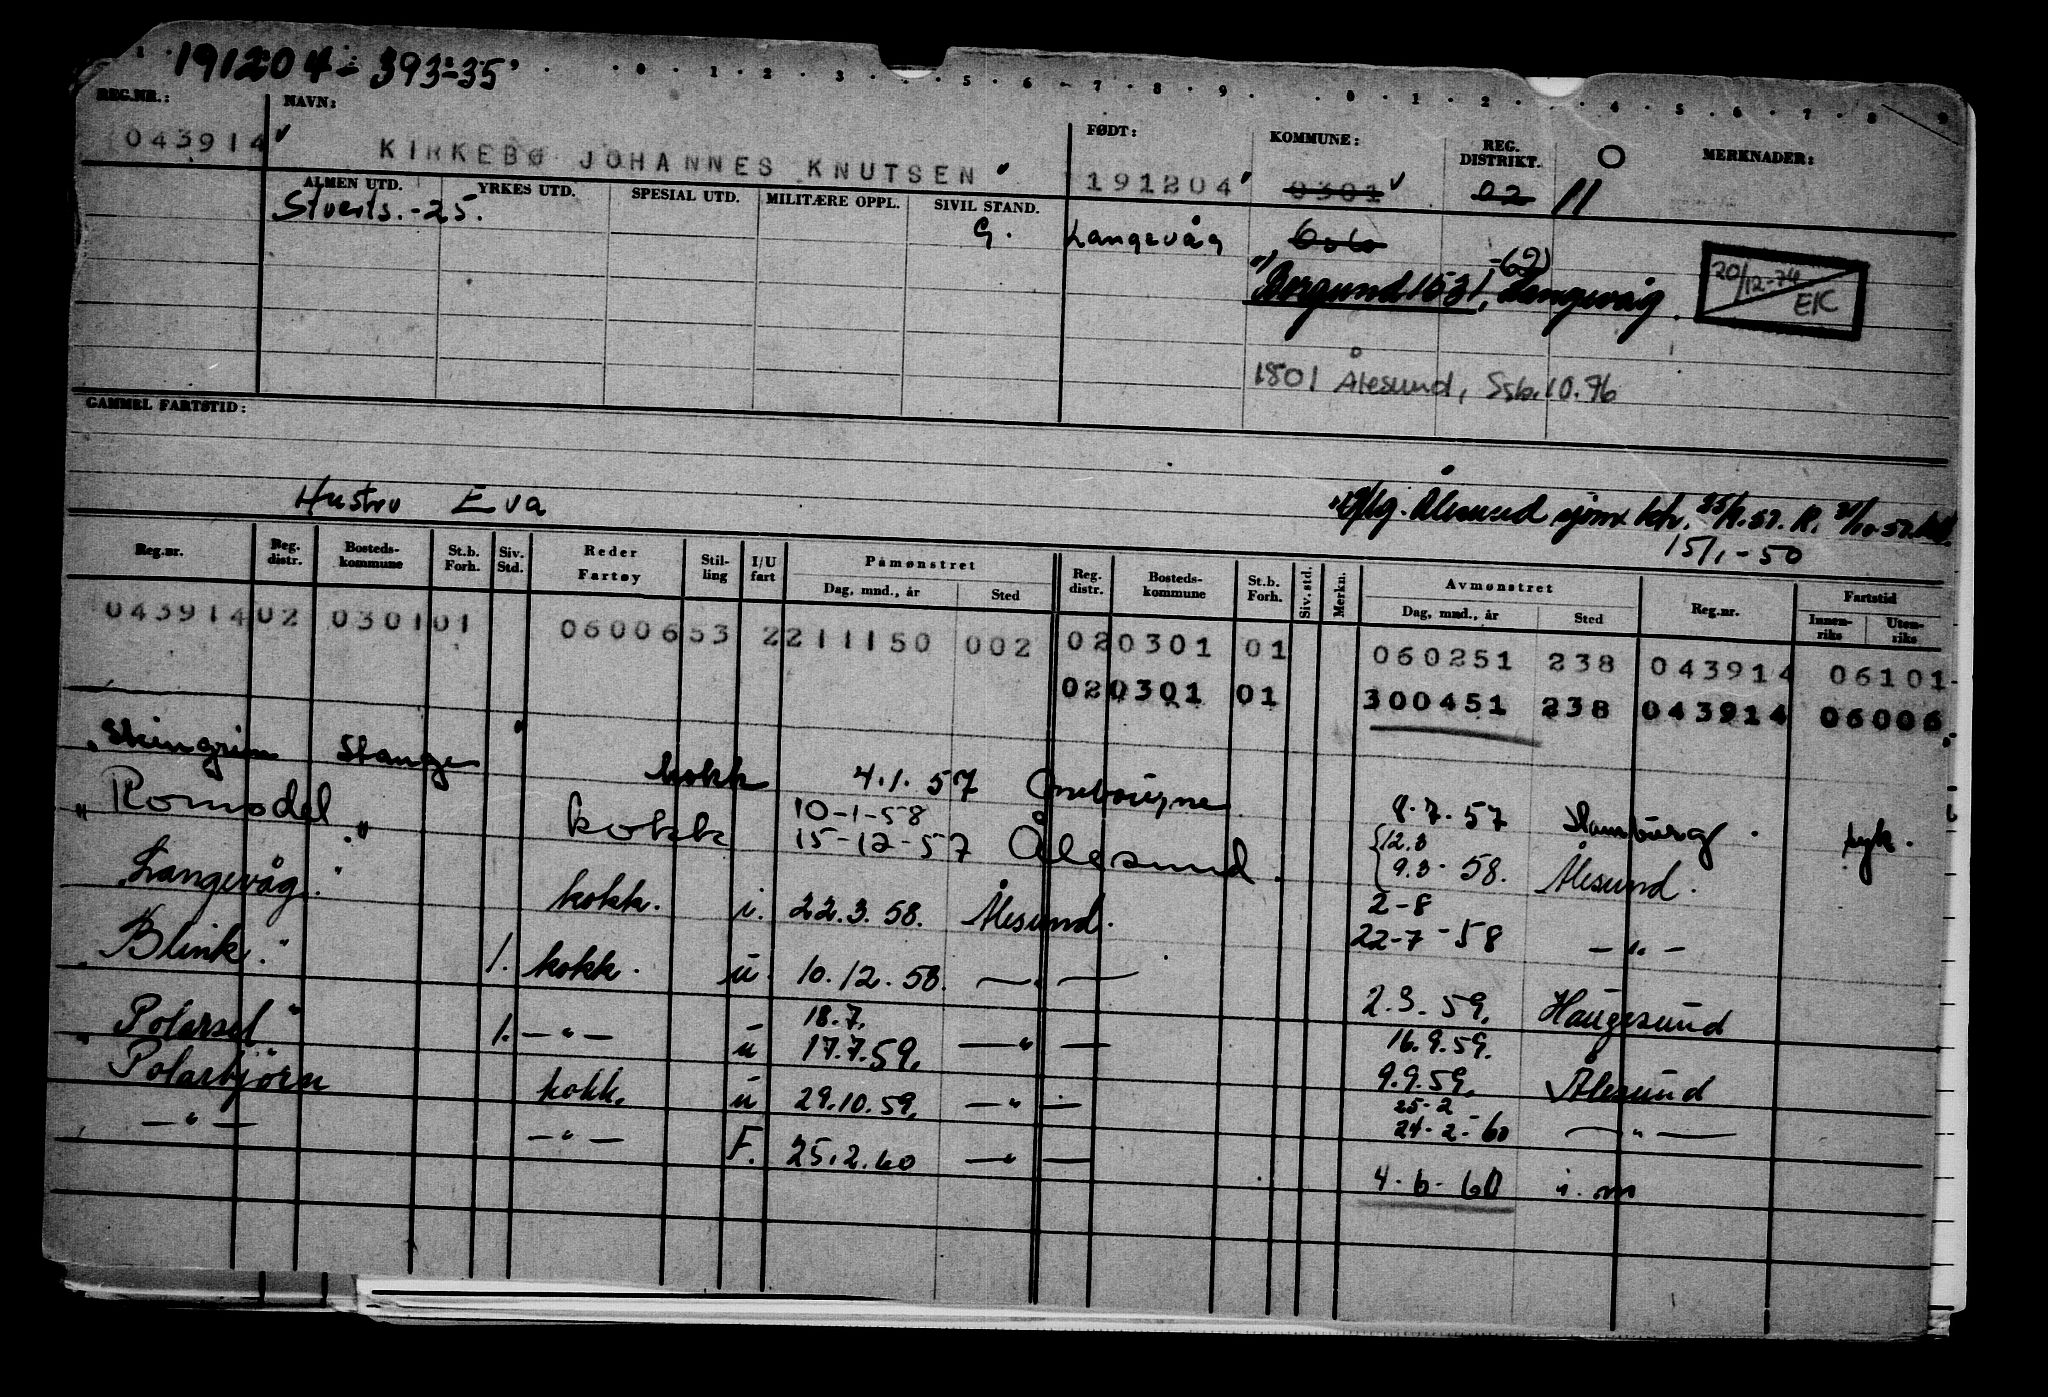 191204 - 39335
REG.NR.: NAVN: FØDT: KOMMUNE: REG. DISTRIKT. O MERKNADER:
043914 KIRKEBØ JOHANNES KNUTSEN 191204 0301 02 11
ALMEN UTD. YRKES UTD. SPESIAL UTD. MILITÆRE OPPL. SIVIL STAND.
Stuerts.-25. G. Langevåg Oslo
Borgund 1531, Langevåg. -(62)
20/12-74 EK
1501 Ålesund, Ssb. 10.76
GAMMEL FARTSTID:
Hustru Eva
Ålesund sjømk.
15/1-50
Reg.nr. Reg. distr. Bosteds-kommune St.b. Forh. Siv. Std. Reder Fartøy Stil-ling I/U fart Påmønstret Dag, mnd., år Sted Reg. distr. Bosteds-kommune St.b. Forh. Siv. std. Merkn. Avmønstret Dag, mnd., år Sted Reg.nr. Fartstid Innen-riks Uten-riks
043914 02 0301 01 0600653 2 211150 002 02 0301 01 060251 238 043914 06101
02 0301 01 300451 238 043914 06006
Skingrim Stange kokk 4.1.57 8.7.57 Hamburg. syk.
" Romsdal " kokk 10-1-58 15-12-57 Ålesund. 12.3 9.3-58. Ålesund.
" Langevåg." kokk. i. 22.3.58. Ålesund. 2-8 22-7-58 — " —
" Blink." 1. kokk. u. 10.12.58. — " — 2.3.59. Haugesund
" Polarsel " 1. — " — u 18.7. 17.7.59. — " — 16.9.59. 9.9.59. Ålesund
Polarbjörn kokk. u 29.10.59. — " — 25-2 24-2-60 — " —
— " — — " — F. 25.2.60 — " — 4-6-60 i.m